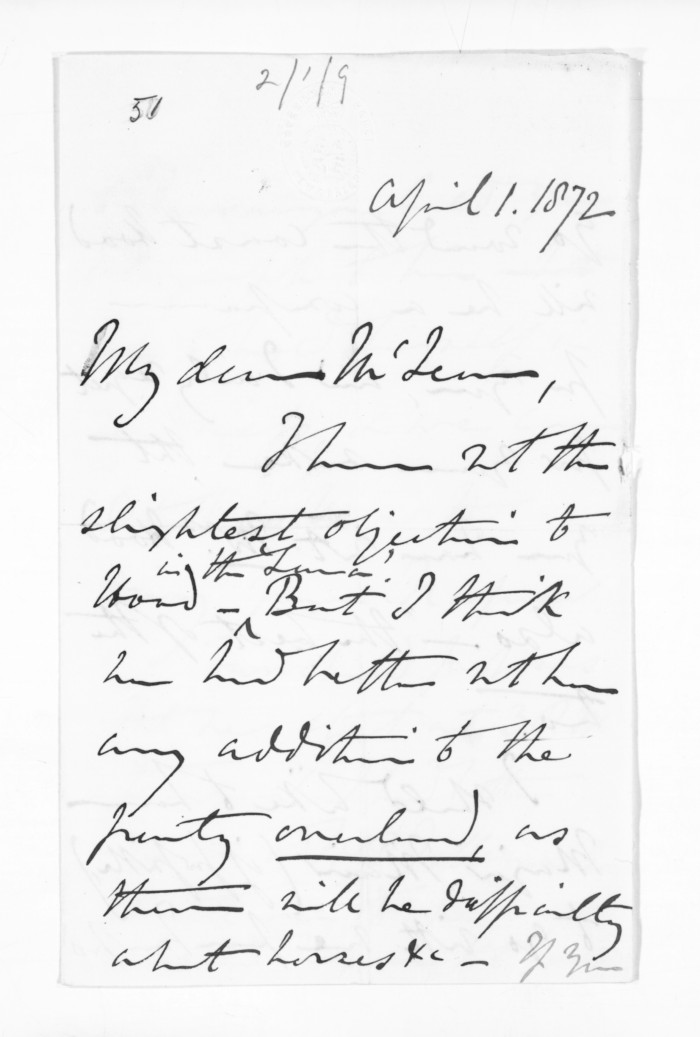 51
2/1/9
April 1. 1872
My dear McLean,
I have not the
slightest objection to
in the "Luna".
Wood - But I think
we had better not have
any addition to the
party overland, as
there will be difficulty
about horses &c - If you